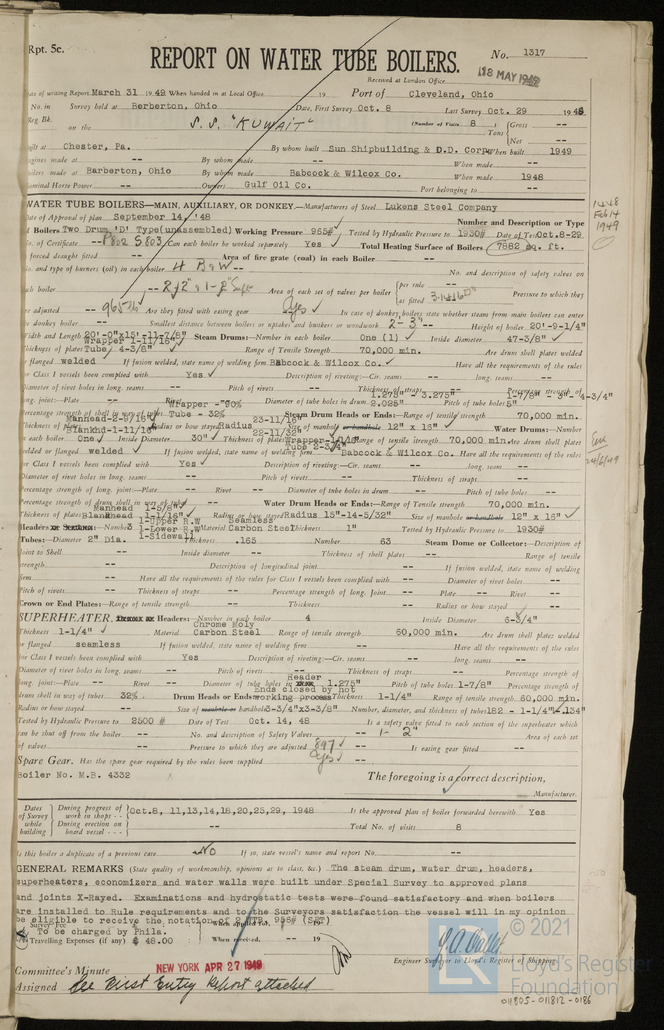 Rpt. 5c.
REPORT ON WATER TUBE BOILERS.
No. 1317
Received at London Office
18 MAY 1949
Date of writing Report March 31 1949 When handed in at Local Office 19 Port of Cleveland, Ohio
No. in Survey held at Berberton, Ohio Date, First Survey Oct. 8 Last Survey Oct. 29 1948
Reg. Bk. on the S.S. "KUWAIT" (Number of Visits 8) Tons Gross -- Net --
Built at Chester, Pa. By whom built Sun Shipbuilding & D.D. Corp. When built 1949
Engines made at -- By whom made -- When made --
Boilers made at Barberton, Ohio By whom made Babcock & Wilcox Co. When made 1948
Nominal Horse Power -- Owners Gulf Oil Co. Port belonging to --
WATER TUBE BOILERS—MAIN, AUXILIARY, OR DONKEY.—Manufacturers of Steel Lukens Steel Company
Date of Approval of plan September 14, '48 Number and Description or Type
of Boilers Two Drum 'D' Type(unassembled) Working Pressure 965# Tested by Hydraulic Pressure to 1930# Date of Test Oct.8-29
No. of Certificate Can each boiler be worked separately Yes Total Heating Surface of Boilers 7882 sq. ft.
forced draught fitted -- Area of fire grate (coal) in each Boiler --
No. and type of burners (oil) in each boiler 4 B&W -- No. and description of safety valves on
each boiler -- Area of each set of valves per boiler per rule -- as fitted Pressure to which they
are adjusted 965# Are they fitted with easing gear Yes In case of donkey boilers state whether steam from main boilers can enter
the donkey boiler -- Smallest distance between boilers or uptakes and bunkers or woodwork 2'-3" Height of boiler 20'-9-1/4"
Width and Length 20'-0"x15'-11-7/8" Steam Drums:—Number in each boiler One (1) Inside diameter 47-3/8"
Wrapper 1-11/16"
Thickness of plates Tube 4-3/8" Range of Tensile Strength 70,000 min. Are drum shell plates welded
or flanged welded If fusion welded, state name of welding firm Babcock & Wilcox Co. Have all the requirements of the rules
for Class I vessels been complied with Yes Description of riveting:—Cir. seams -- long. seams --
Diameter of rivet holes in long. seams -- Pitch of rivets -- Thickness of straps -- Percentage strength of
1.275" - 3.275" 1-7/8" - 3" - 4-3/4"
long. joint:—Plate -- Rivet -- Diameter of tube holes in drum 2.025" Pitch of tube holes 5"
Wrapper - 90%
Percentage strength of shell in way of tubes Tube - 32% Steam Drum Heads or Ends:—Range of tensile strength 70,000 min.
Manhead-2-5/16" 23-11/16"
Thickness of plates Blankhd-1-11/16" Radius or how stayed Radius 22-11/32" Size of manhole or handhole 12" x 16" Water Drums:—Number
in each boiler One Inside Diameter 30" Thickness of plates Wrapper-1-1/16" Range of tensile strength 70,000 min. Are drum shell plates
Tube 2-3/4"
welded or flanged welded If fusion welded, state name of welding firm Babcock & Wilcox Co. Have all the requirements of the rules
for Class I vessels been complied with Yes Description of riveting:—Cir. seams -- long. seams --
Diameter of rivet holes in long. seams -- Pitch of rivets -- Thickness of straps --
Percentage strength of long. joint:—Plate -- Rivet -- Diameter of tube holes in drum -- Pitch of tube holes --
Percentage strength of drum shell in way of tubes -- Water Drum Heads or Ends:—Range of Tensile Strength 70,000 min.
Manhead 1-5/8"
Thickness of plates Blankhead 1-1/16" Radius or how stayed Radius 15"-14-5/32" Size of manhole or handhole 12" x 16"
1-Upper R.W Seamless
Headers Number 3 1-Lower R.W Material Carbon Steel Thickness 1" Tested by Hydraulic Pressure to 1930#
1-Sidewall
Tubes:—Diameter 2" Dia. Thickness .165 Number 63 Steam Dome or Collector:—Description of
Joint to Shell -- Inside diameter -- Thickness of shell plates -- Range of tensile
strength -- Description of longitudinal joint -- If fusion welded, state name of welding
firm -- Have all the requirements of the rules for Class I vessels been complied with -- Diameter of rivet holes --
Pitch of rivets -- Thickness of straps -- Percentage strength of long. Joint -- Plate -- Rivet --
Crown or End Plates:—Range of tensile strength -- Thickness -- Radius or how stayed --
SUPERHEATER, Headers:—Number in each boiler 4 Inside Diameter 6-3/4"
Chrome Moly
Thickness 1-1/4" Material Carbon Steel Range of tensile strength 60,000 min. Are drum shell plates welded
or flanged seamless If fusion welded, state name of welding firm -- Have all the requirements of the rules
for Class I vessels been complied with Yes Description of riveting:—Cir. seams -- long. seams --
Diameter of rivet holes in long. seams -- Pitch of rivets -- Thickness of straps -- Percentage strength of
Header
long. joint:—Plate -- Rivet -- Diameter of tube holes in 1.275" Pitch of tube holes 1-7/8" Percentage strength of
Ends closed by hot
drum shell in way of tubes 32% Drum Heads or Ends working process Thickness 1-1/4" Range of tensile strength 60,000 min.
Radius or how stayed -- Size of manhole or handhole 3-3/4"x3-3/8" Number, diameter, and thickness of tubes 182 - 1-1/4" .134"
Tested by Hydraulic Pressure to 2500 # Date of Test Oct. 14, 48 Is a safety valve fitted to each section of the superheater which
can be shut off from the boiler -- No. and description of Safety Valves 1- 2" Area of each set
of valves -- Pressure to which they are adjusted 897 Is easing gear fitted --
Spare Gear. Has the spare gear required by the rules been supplied Yes
Boiler No. M.B. 4332 The foregoing is a correct description,
Manufacturer.
Dates of Survey while building During progress of work in shops - - Oct.8, 11,13,14,18,20,25,29, 1948 Is the approved plan of boiler forwarded herewith Yes
During erection on board vessel - - - -- Total No. of visits 8
Is this boiler a duplicate of a previous case No If so, state vessel's name and report No. --
GENERAL REMARKS (State quality of workmanship, opinions as to class, &c.) The steam drum, water drum, headers,
superheaters, economizers and water walls were built under Special Survey to approved plans
and joints X-Rayed. Examinations and hydrostatic tests were found satisfactory and when boilers
are installed to Rule requirements and to the Surveyors satisfaction the vessel will in my opinion
be eligible to receive the notation
Survey Fee When applied for, -- 19
To be charged by Phila.
Travelling Expenses (if any) $ 48.00 When received, -- 19
Engineer Surveyor to Lloyd's Register of Shipping.
Committee's Minute NEW YORK APR 27 1949
Assigned See First Entry Report attached
© 2021
Lloyd's Register
Foundation
011805-011812-0186